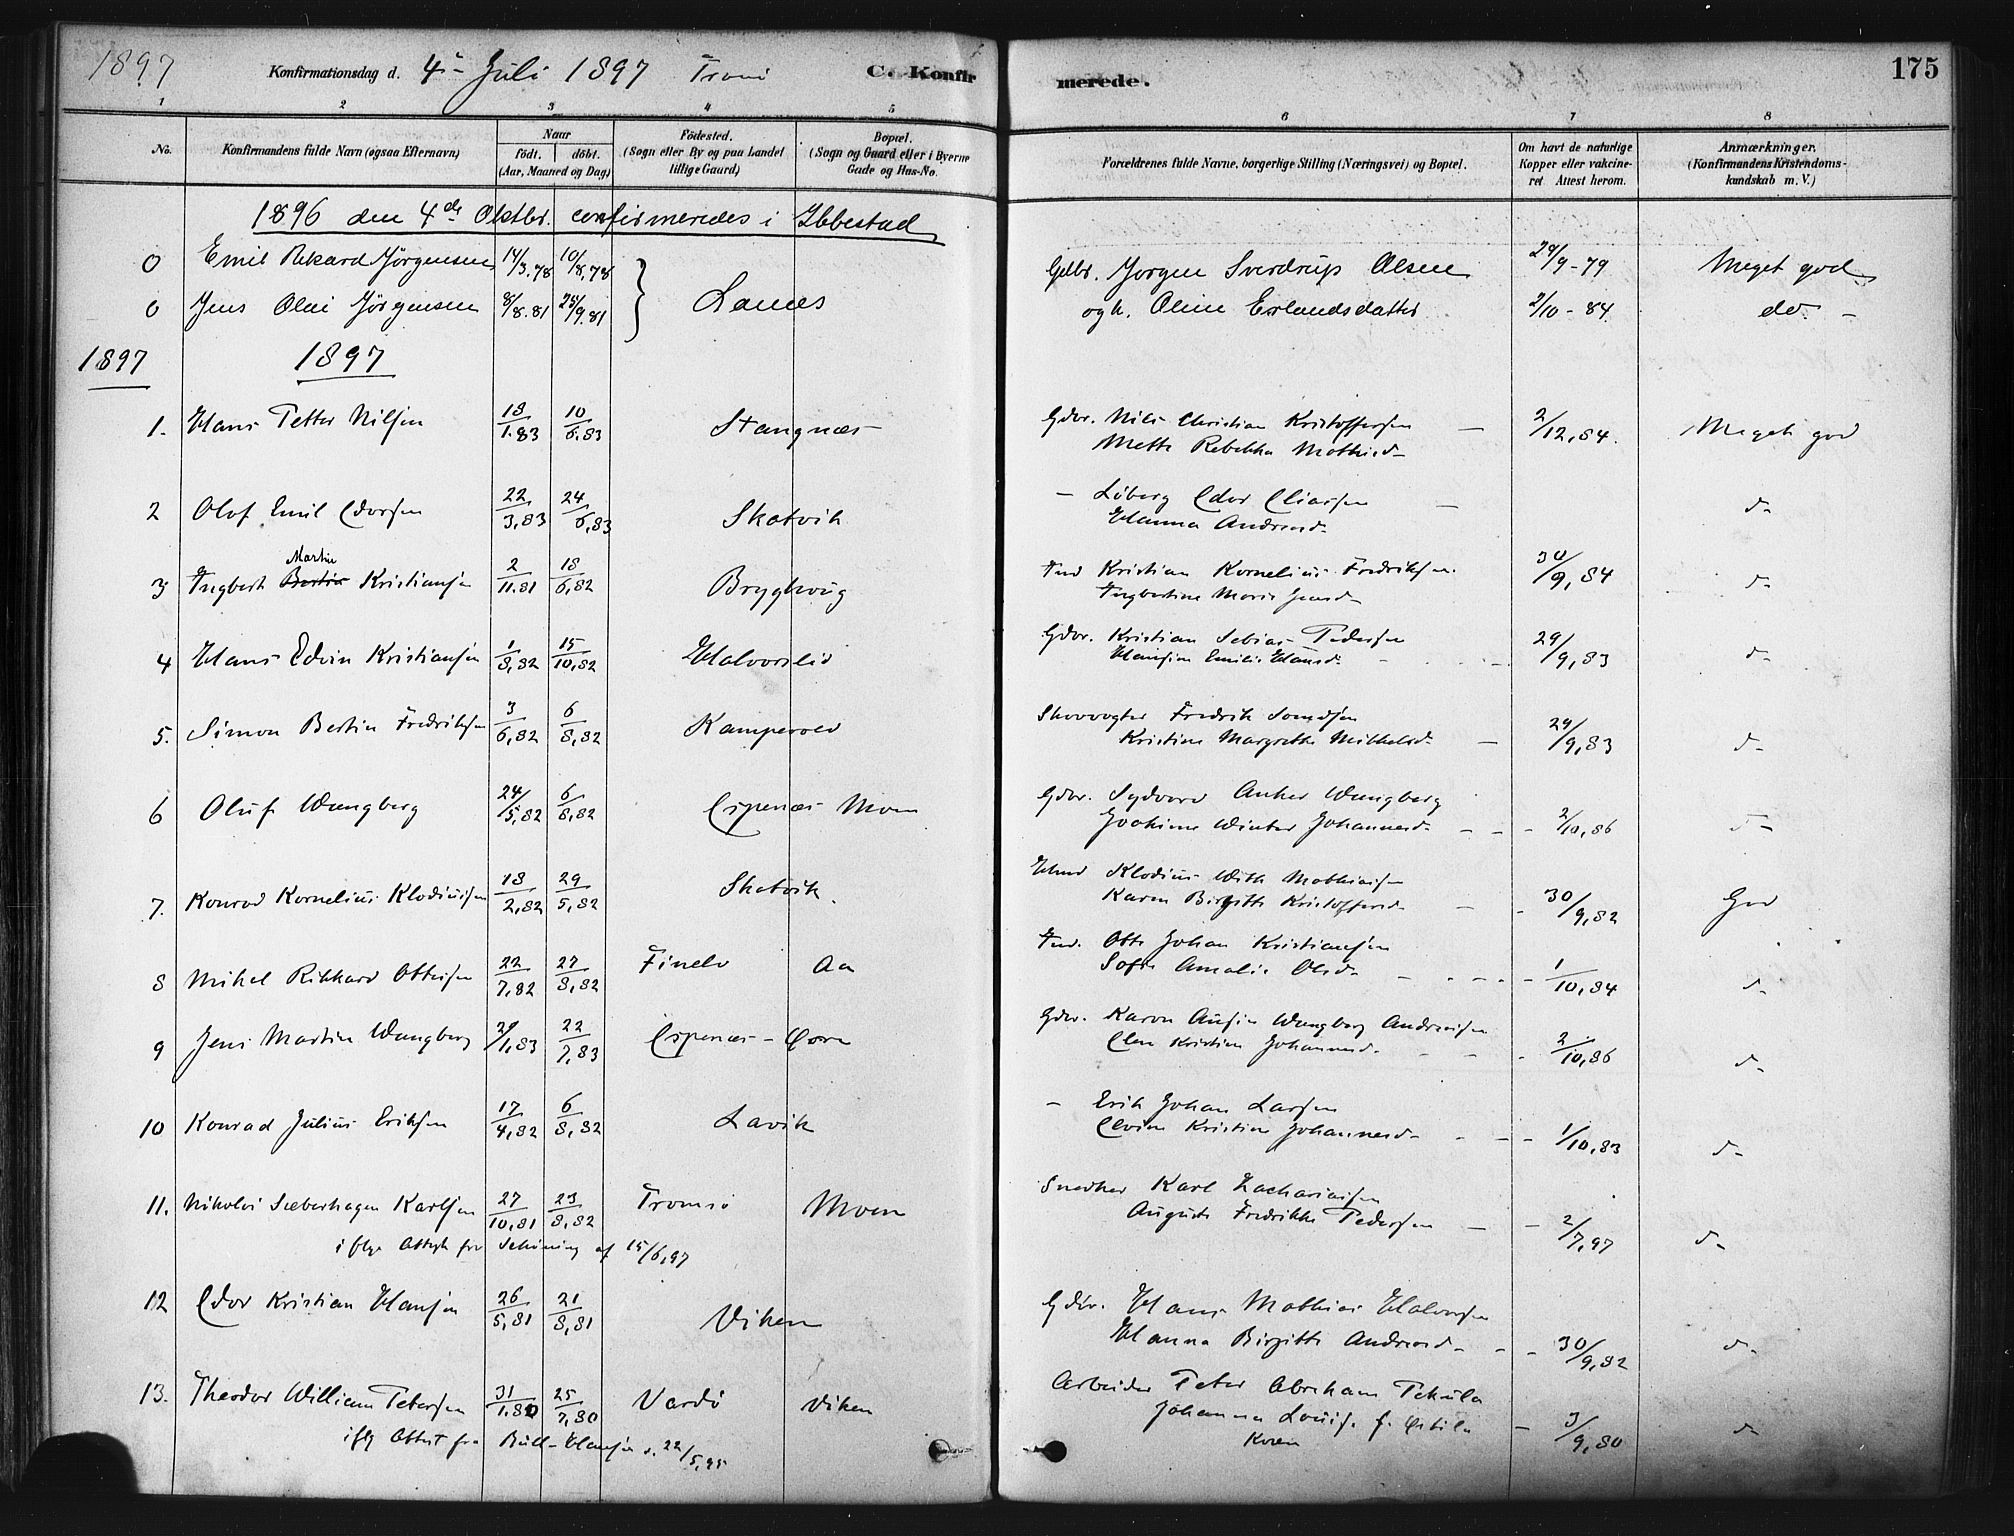 1897 Konfirmationsdag d. 4de Juli 1897 C. Konfirmerede. 175
1 2 3 4 5 6 7 8
No. Konfirmandens fulde Navn (ogsaa Efternavn) Naar født. døbt. (Aar, Maaned og Dag) Fødested. (Sogn eller By og paa Landet tillige Gaard) Bopæl. (Sogn og Gaard eller i Byerne Gade og Hus-No. Forældrenes fulde Navne, borgerlige Stilling (Næringsvei) og Bopæl. Om havt de naturlige Kopper eller vakcineret Attest herom. Anmærkninger. (Konfirmandens Kristendomskundskab m. V.)
1896 den 4de Oktbr. confirmeredes i Ibbestad
0 Emil Rikard Jørgensen 14/3.78 10/8.78 Lanes Gdbr. Jørgen Sverdrup Olsen 29/9-79 Meget god
0 Jens Olai Jørgensen 8/8.81 25/9.81 ogh. Oline Erlandsdatter 2/10-84 do.
1897 1897
1. Hans Petter Nilsen 18/1.83 10/6.83 Stangnæs Gdbr. Nils Christian Kristoffersen 2/12,84. Meget god
Mette Rebekka Mathisd
2 Olof Emil Edorsen 22/3,83 24/6,83 Skatvik - Løberg Edor Eliassen d-
Hanna Andreasd
3 Ingbert Martin Kristiansen 2/11.81 18/6,82 Bryghaug Ind Kristian Kornelius Fredriksen 30/9,84 d-
Ingbertine Marie Jensd
4 Hans Edvin Kristiansen 1/8,82 15/10,82 Halvorslid Gdbr. Kristian Tobias Pedersen 29/9,83 d-
Hansine Emilie Hansd
5. Simon Bertin Fredriksen 3/6,82 6/8,82 Kampevold Skovvogter Fredrik Simonsen 29/9,83 d-
Kristine Margrethe Mikkelsd
6 Oluf Wangberg 24/5,82 6/8,82 Espenæs Moen Gdbr. Sydvard Anker Wangberg
Joakime Winter Johannesd 2/10,86 d-
7. Konrad Kornelius Klodiussen 18/2,82 29/5,82 Skatvik. Hmd Klodius With Mathiassen
Karen Birgitte Kristoffersd 30/9,82 God
8 Mikal Rikkard Ottesen 22/7,82 27/8,82 Finelv Aa Ind. Otto Johan Kristiansen
Sofie Amalie Olsd 1/10,84 d-
9 Jens Martin Wangberg 29/1,83 22/7,83 Espenæs - Gdbr. Karon Wangberg Andreassen
Elen Kristine Johannesd 2/10,86 d-
10 Konrad Julius Eriksen 17/4,82 6/8,82 Lavik - Erik Johan Larsen
Elvine Kristine Johannesd 1/10,83 d-
11. Nikolai Sæberhagen Karlsen 27/10,81 23/8,82 Tromsø Moen Snedker Karl Zachariassen
Augusta Fredrikke Pedersen 2/7,97 d-
iflge Attest fra Schøning af 15/6,97
12 Edor Kristian Hansen 26/5,81 21/8,81 Viken Gdbr. Hans Mathias Halvorsen
Hanna Birgitte Andreasd 30/9,82 d-
13. Theodor William Petersen 31/1.80 25/7,80 Vardø Viken Arbeider Peter Abraham Pekula
Johanna Lovise f.
Kvæn 3/9,80 d-
iflg Attest fra Bull-Hansen d. 22/5,95